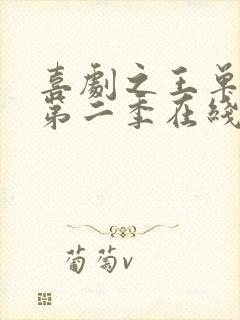 喜劇之王单
第二季在綫
葡萄v